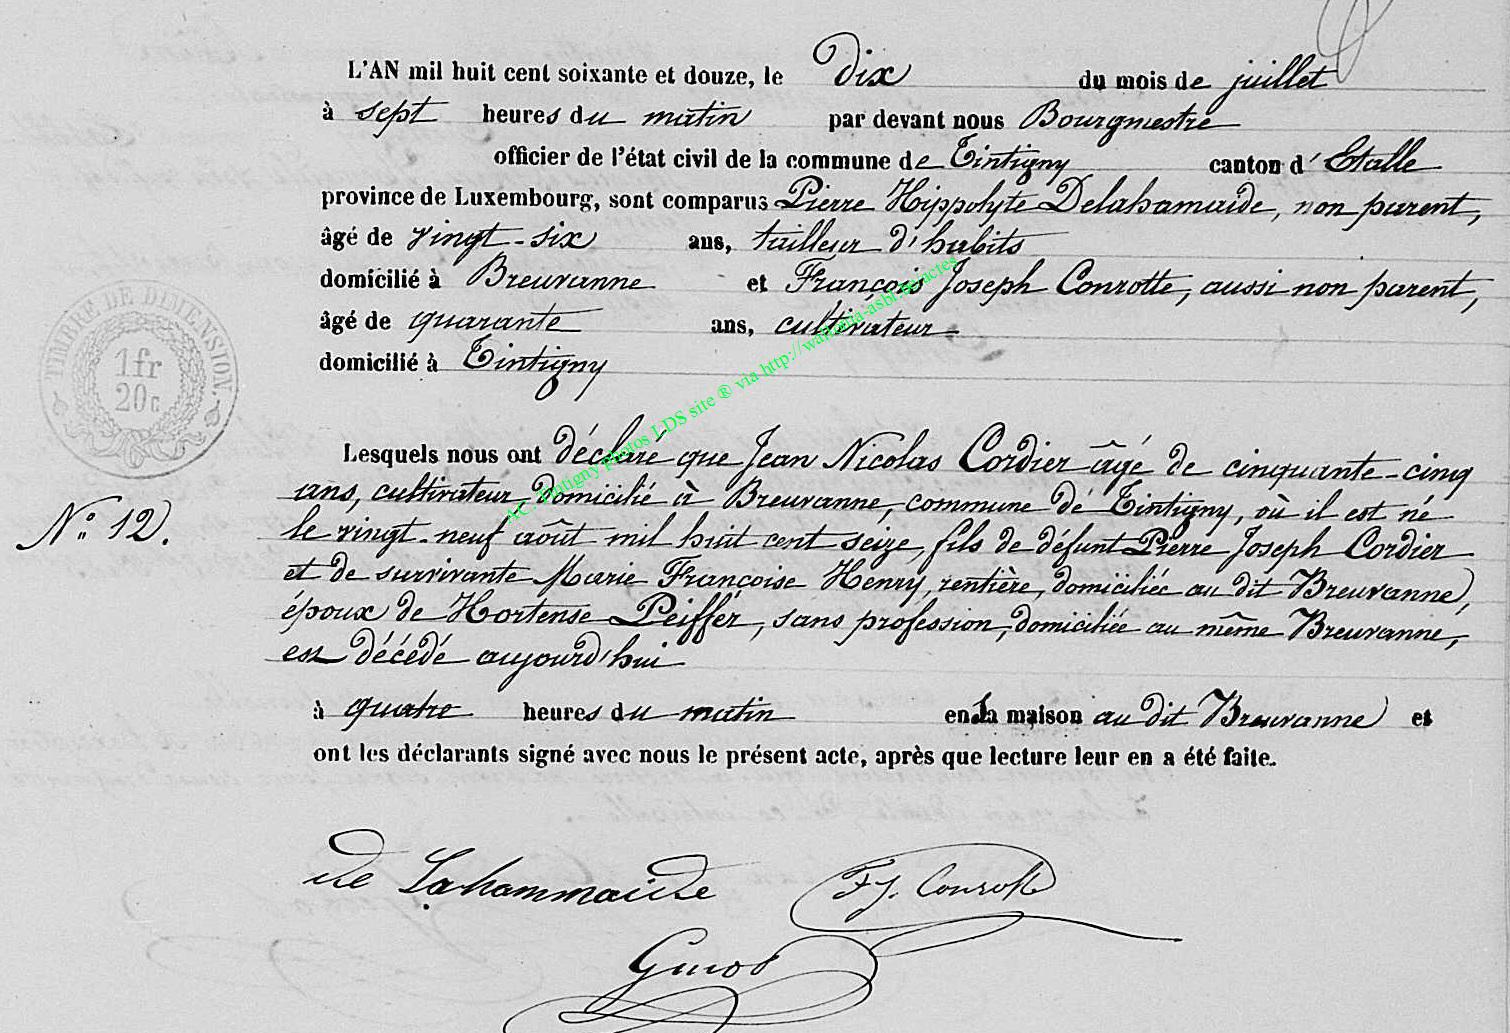 L'AN mil huit cent soixante et douze, le dix du mois de juillet
à sept heures du matin par devant nous Bourgmestre
officier de l'état civil de la commune de Tintigny canton d'Etalle
province de Luxembourg, sont comparus Pierre Hippolyte Delahamaide, non parent,
âgé de vingt-six ans, tailleur d'habits
domicilié à Breuvanne et François Joseph Conrotte, aussi non parent,
âgé de quarante ans, cultivateur
domicilié à Tintigny
TIMBRE DE DIMENSION.
1 fr
20 c
AC. Tintigny photos LDS site ® via http://wallonia-asbl.be/actes
Lesquels nous ont déclaré que Jean Nicolas Cordier âgé de cinquante-cinq
ans, cultivateur, domicilié à Breuvanne, commune de Tintigny, où il est né
N° 12.
le vingt-neuf août mil huit cent seize, fils de défunt Pierre Joseph Cordier
et de survivante Marie Françoise Henry, rentière, domiciliée au dit Breuvanne,
époux de Hortense Peiffer, sans profession, domiciliée au même Breuvanne,
est décédé aujourd'hui
à quatre heures du matin en la maison au dit Breuvanne et
ont les déclarants signé avec nous le présent acte, après que lecture leur en a été faite.
de Lahammaide FJ. Conrott